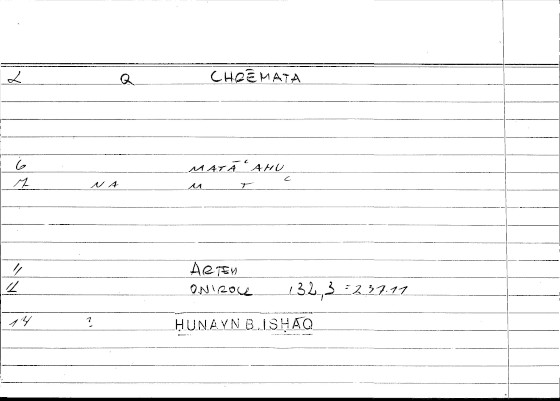 L Q CHRĒMATA
6 MATĀʿAHU
7 NA M T ʿ
11 ARTEM
12 ONIROCR 132,3 = 237.11
14 ? ḤUNAYN B. ISḤĀQ